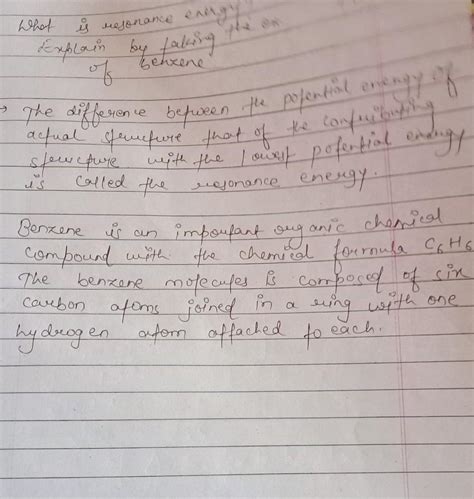 What is resonance energy
Explain by taking the ex
of benzene
→ The difference between the potential energy of
actual structure that of the contributing
structure with the lowest potential energy
is called the resonance energy.
Benzene is an important organic chemical
compound with the chemical formula C6H6
The benzene molecules is composed of six
carbon atoms joined in a ring with one
hydrogen atom attached to each.